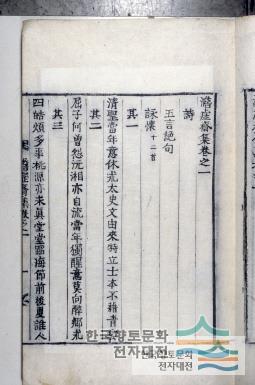 齋集卷之一
詩
五言絶句
詠懷 十二首
其一
清聖當年意休光太史文由來特立士本不藉青
其二
屈子何曾怨沅湘亦自流當年獨醒意莫向醉鄉
其三
四皓頗多事桃源亦未眞堂堂蹈海節前後更誰人
한국향토문화
전자대전
한국향토문화
전자대전